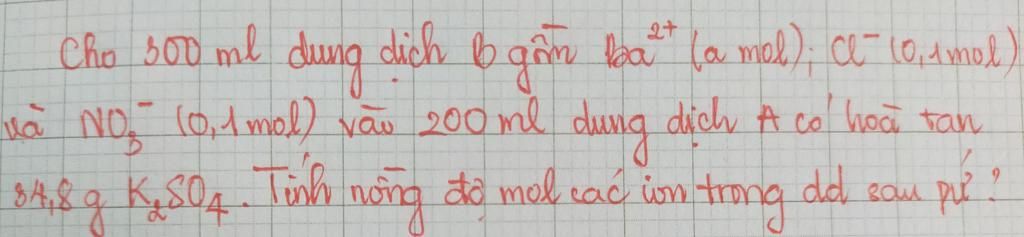 Cho 300 ml dung dịch B gồm Ba²⁺ (a mol); Cl⁻ (0,1mol)
và NO₃⁻ (0,1 mol) vào 200 ml dung dịch A có hoà tan
34,8 g K₂SO₄. Tính nồng độ mol các ion trong dd sau pứ?